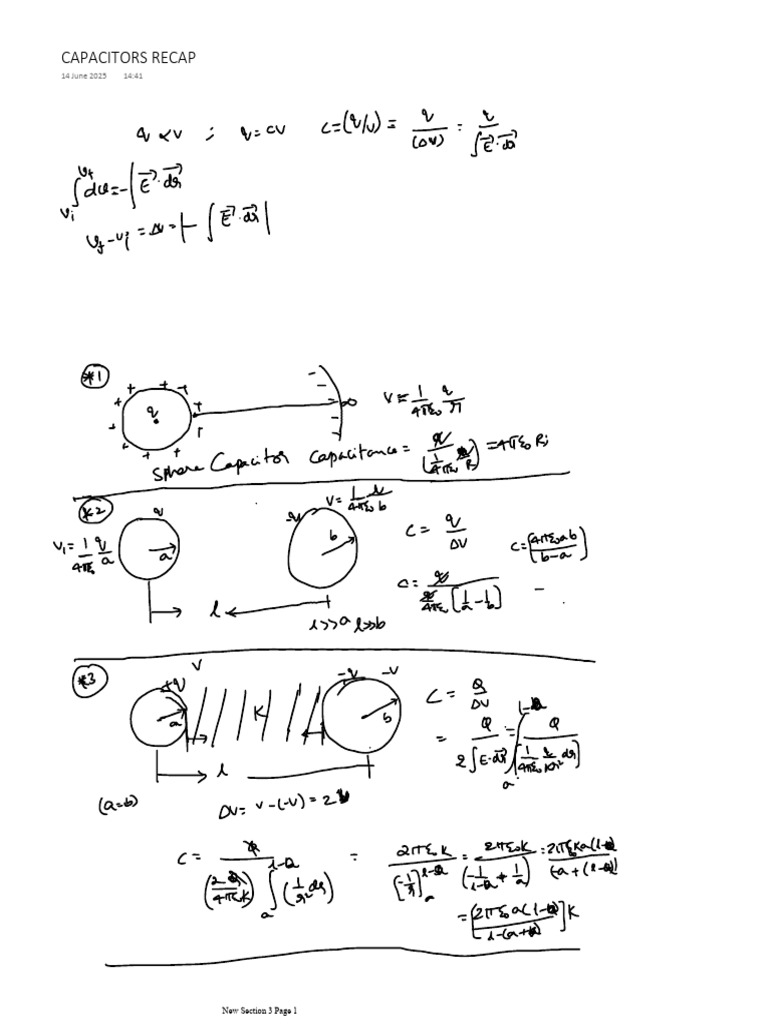 CAPACITORS RECAP
14 June 2025 14:41
q ∝ V ; q = CV C = (q/V) = q/(ΔV) = q/∫E⃗·dr⃗
∫_{Vi}^{Vf} dv = -∫E⃗·dr⃗
Vf - Vi = ΔV = |-∫E⃗·dr⃗|
*1
+ + + + + + + + + +
q
- - - - -
∞
V = 1/4πε₀ q/r
Sphere Capacitor Capacitance = q/(1/4πε₀ q/R) = 4πε₀ R
*2
q
V₁ = 1/4πε₀ q/a
a
-q
V = 1/4πε₀ q/b
b
C = q/ΔV
C = (4πε₀ab/b-a)
C = q/(q/4πε₀ [1/a - 1/b])
l
l>>a l>>b
*3
+q V
a
K
-q -V
b
C = Q/ΔV
= Q/2∫E·dr⃗ = Q/∫_a^{l-a} [1/4πε₀ q/Kr² dr]
l
(a=b)
ΔV = V-(-V) = 2V
C = Q/((2Q/4πε₀K) ∫_a^{l-a} (1/r² dr)) = 2πε₀K/[-1/r]_a^{l-a} = 2πε₀K/(-1/l-a + 1/a) = 2πε₀Ka(l-a)/(-a + (l-a))
= [2πε₀a(l-a)/l-(a+a)]K
New Section 3 Page 1